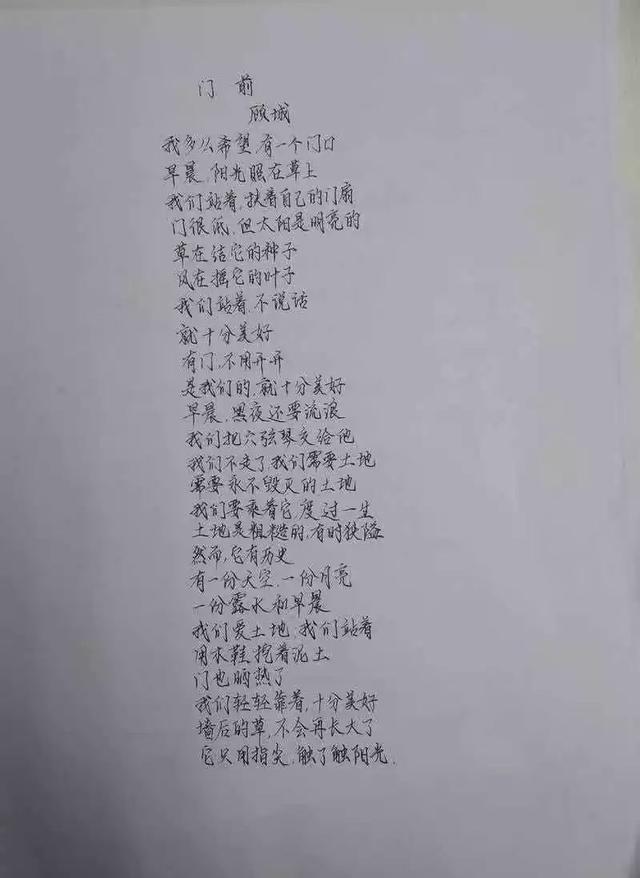 门 前
顾城
我多么希望,有一个门口
早晨,阳光照在草上
我们站着,扶着自己的门扇
门很低,但太阳是明亮的
草在结它的种子
风在摇它的叶子
我们站着,不说话
就十分美好
有门,不用开开
是我们的,就十分美好
早晨,黑夜还要流浪
我们把六弦琴交给他
我们不走了,我们需要土地
需要永不毁灭的土地
我们要乘着它,度过一生
土地是粗糙的,有时狭隘
然而,它有历史
有一份天空,一份月亮
一份露水和早晨
我们爱土地,我们站着
用木鞋,挖着泥土
门也晒热了
我们轻轻靠着,十分美好
墙后的草,不会再长大了
它只用指尖,触了触阳光.